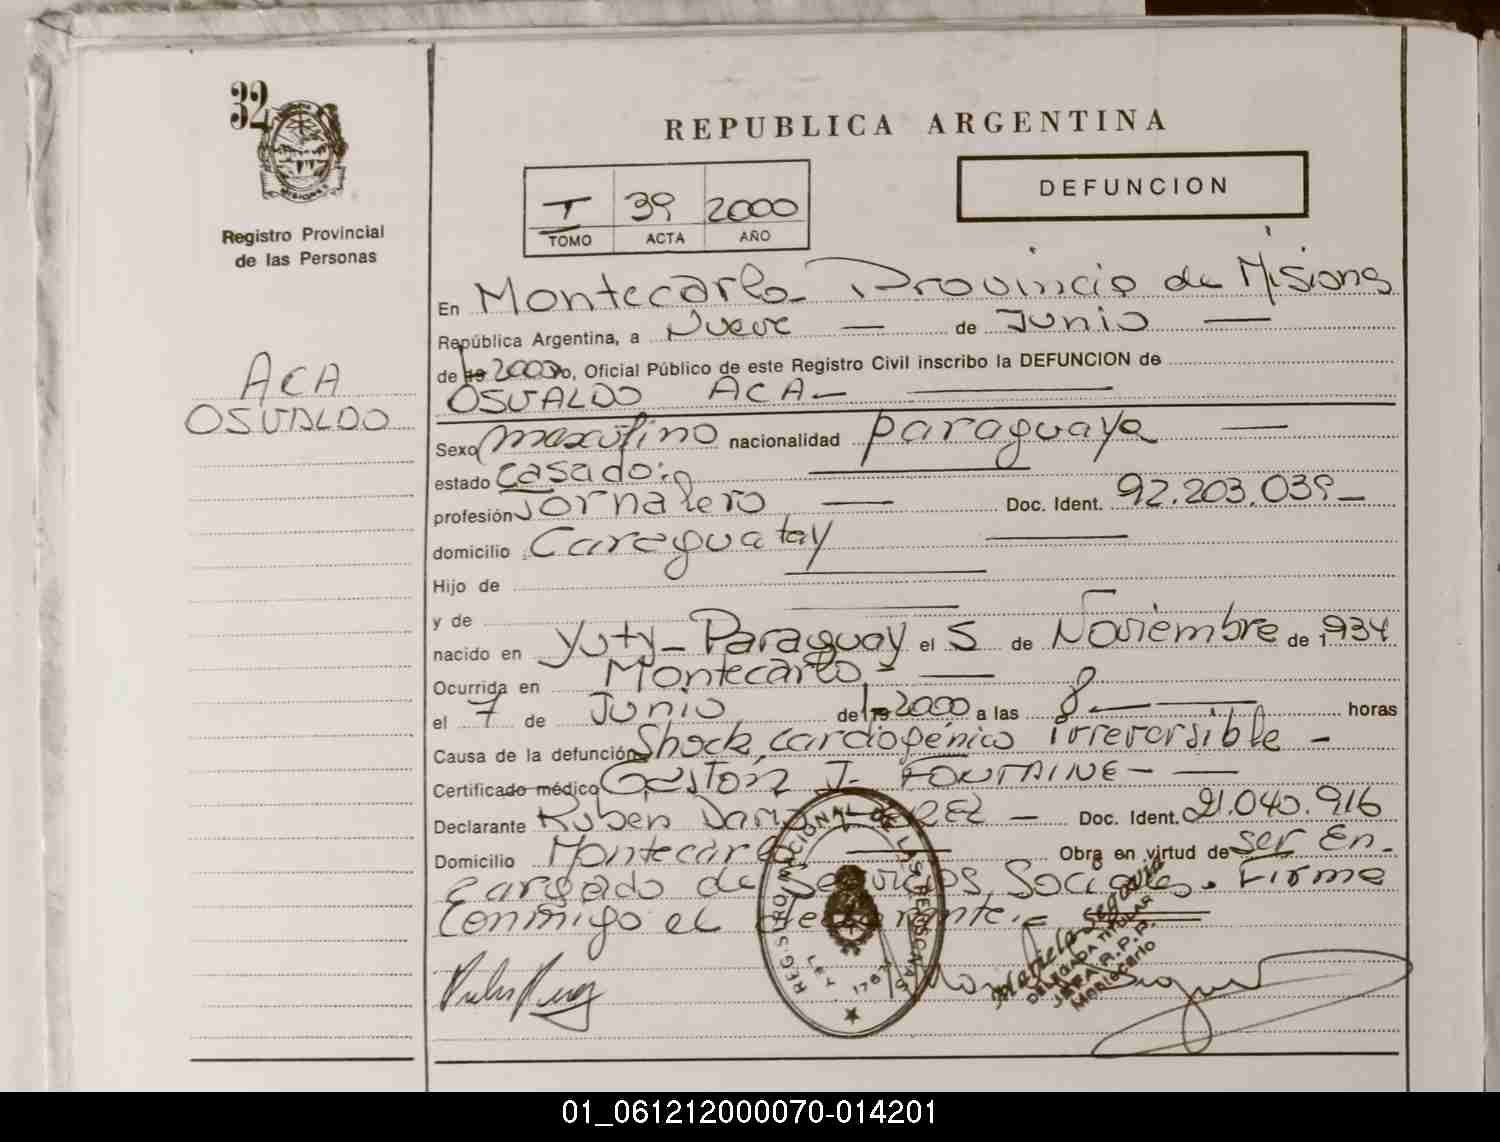 32
MISIONES
Registro Provincial
de las Personas
ACA
OSVALDO
REPUBLICA ARGENTINA
DEFUNCION
T 39 2000
TOMO ACTA AÑO
En Montecarlo - Provincia de Misiones
República Argentina, a Nueve — de Junio —
de 19 2000 yo, Oficial Público de este Registro Civil inscribo la DEFUNCION de
OSVALDO ACA —
Sexo masculino nacionalidad paraguaya —
estado casado:
profesión Jornalero — Doc. Ident. 92.203.039 —
domicilio Caraguatay —
Hijo de —
y de —
nacido en Yuty - Paraguay el 5 de Noviembre de 1934
Ocurrida en Montecarlo - —
el 7 de Junio de 19 2000 a las 8 — horas
Causa de la defunción Shock cardiogénico irreversible -
Certificado médico Gastón J. FONTAINE - —
Declarante Ruben Dario — Doc. Ident. 21.040.916
Domicilio Montecarlo — Obra en virtud de ser En-
cargado de Servicios Sociales. Firma
conmigo el declarante. =
REGISTRO NACIONAL DE LAS PERSONAS
Mariela Segovia
DELEGADA TITULAR
R.P.P.
Montecarlo
01_061212000070-014201